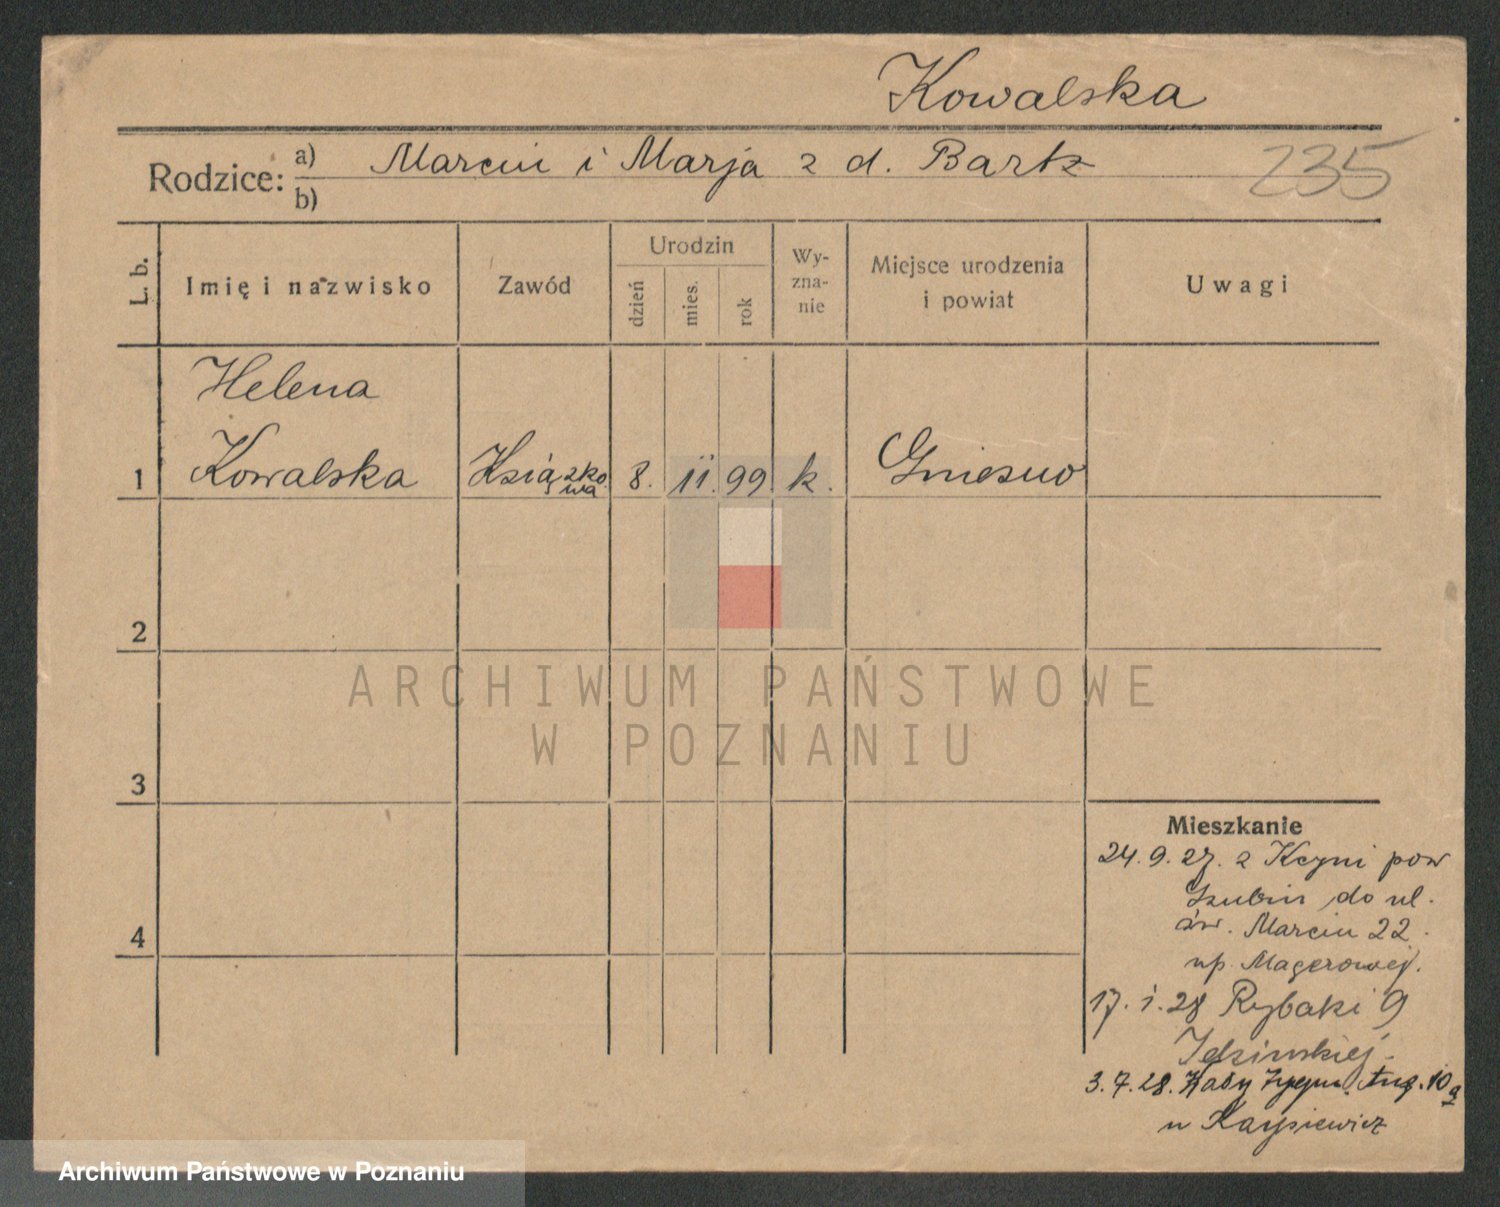 Kowalska
Rodzice: a) Marcin i Marja z d. Bartz
b)
235
L. b.
Imię i nazwisko
Zawód
Urodzin
dzień
mies.
rok
Wy-
zna-
nie
Miejsce urodzenia
i powiat
Uwagi
Helena
1 Kowalska Książko 8. 11. 99 k. Gniezno
wa
2
3
4
ARCHIWUM PAŃSTWOWE
W POZNANIU
Mieszkanie
24.9.27. z Kcyni pow
Szubin do ul.
św. Marcin 22.
up. Magerowej.
17.1.28 Rybaki 9
3.7.28. 10a
u Karpiewicz
Archiwum Państwowe w Poznaniu